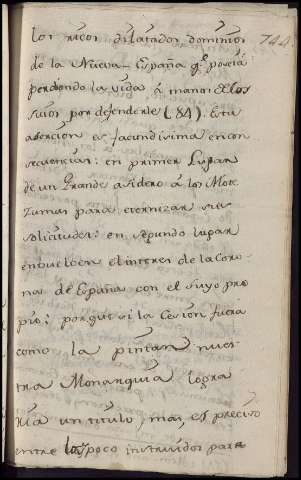 los ricos dilatados dominios 744.
de la Nueva España q.e poseía
perdiendo la vida á manos de los
suios por defenderle (84). Esta
asercion es facundisima en con
secuencias: en primer Lugar
da un Grande asidero á los Mote
zumas para eternizar sus
solicitudes: en segundo lugar
embuelben el interes de la Coro-
na de España con el suyo pro
prio; porque si la Cesion fuera
como la pintan nues-
tra Monarquia logra
ría un titulo mas, es preciso
entre los poco instruidos para